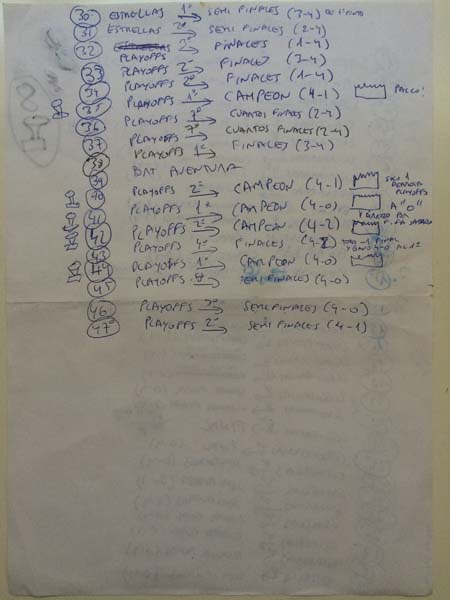 30 ESTRELLAS 1º SEMIFINALES (3-4)
31 ESTRELLAS 2º SEMIFINALES (2-4)
32 PLAYOFFS 2º FINALES (1-4)
33 PLAYOFFS 2º FINALES (3-4)
34 PLAYOFFS 2º FINALES (1-4)
35 PLAYOFFS 1º CAMPEON (4-1)
36 PLAYOFFS 7º CUARTOS FINALES (2-4)
37 PLAYOFFS 7º CUARTOS FINALES (2-4)
PLAYOFFS 1º FINALES (3-4)
38 BAT AVENTURA
39
40 PLAYOFFS 2º CAMPEON (4-1) SOLO 1 DERROTA PLAYOFFS
41 PLAYOFFS 1º CAMPEON (4-0) A "0"
42 PLAYOFFS 2º CAMPEON (4-2)
43 PLAYOFFS 4º FINALES
44 PLAYOFFS 1º CAMPEON (4-0)
45 PLAYOFFS SEMIFINALES (4-0)
46 PLAYOFFS SEMIFINALES (4-0)
47º PLAYOFFS 2º SEMIFINALES (4-1)